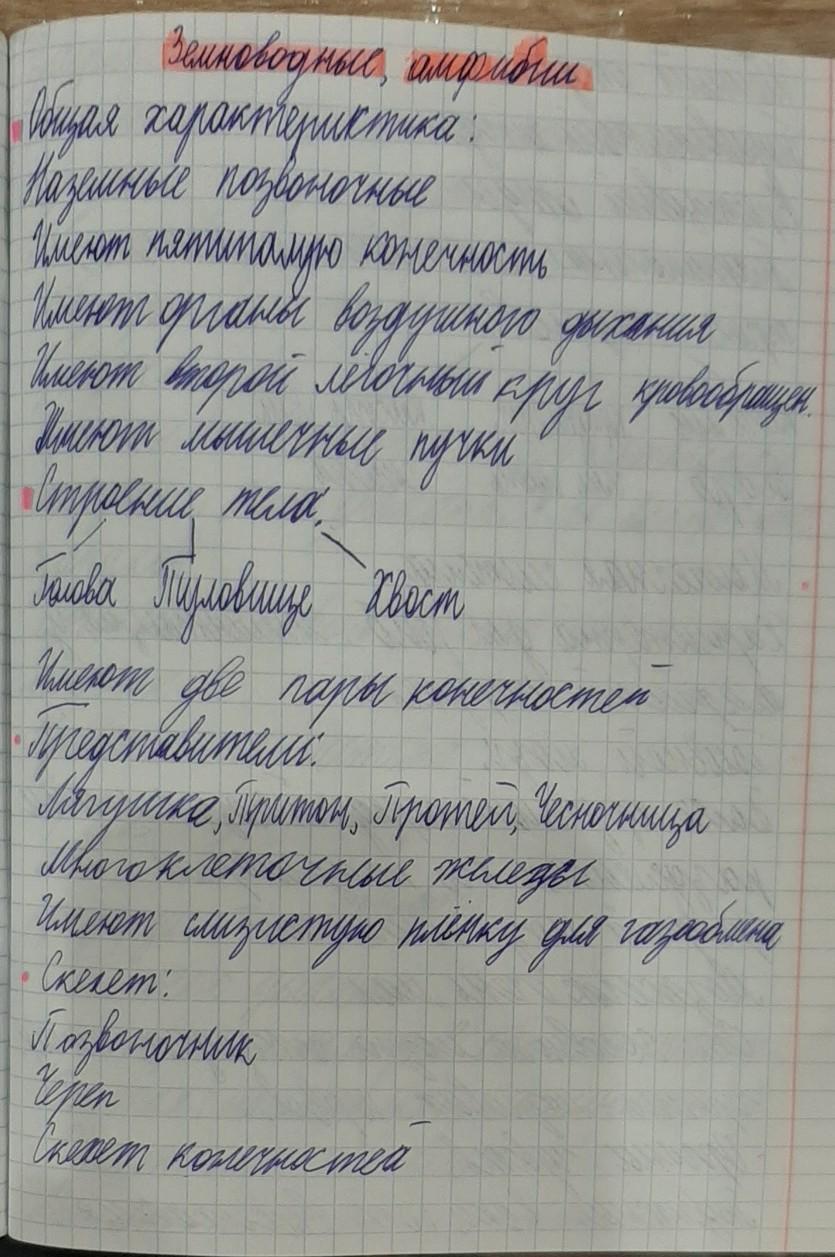 Земноводные, амфибии
Общая характеристика:
Наземные позвоночные
Имеют пятипалую конечность
Имеют органы воздушного дыхания
Имеют второй лёгочный круг кровообращен.
Имеют мышечные пучки
Строение тела.
Голова Туловище Хвост
Имеют две пары конечностей
Представители:
Лягушка, Тритон, Протей, Чесночница
Многоклеточные железы
Имеют слизистую плёнку для газообмена
Скелет:
Позвоночник
Череп
Скелет конечностей